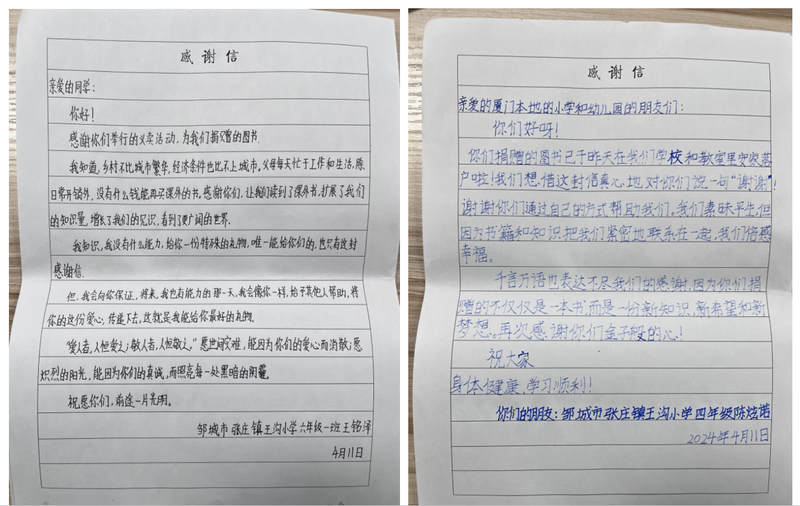 感谢信
亲爱的同学：
你好！
感谢你们举行的义卖活动，为我们捐赠的图书。
我知道，乡村不比城市繁华，经济条件也比不上城市。父母每天忙于工作和生活，除
日常开销外，没有什么钱能再买课外的书。感谢你们，让我们读到了课外书，扩展了我们
的知识量，增长了我们的见识，看到了更广阔的世界。
我知识，我没有什么能力，给你一份特殊的礼物，唯一能给你们的，也只有这封
感谢信。
但，我会向你保证，将来，我也有能力的那一天，我会像你一样，给予其他人帮助，将
你的这份爱心，传递下去，这就是我能给你最好的礼物。
“爱人者，人恒爱之；敬人者，人恒敬之。”愿世间灾难，能因为你们的爱心而消散；愿
炽烈的阳光，能因为你们的真诚，而照亮每一处黑暗的阴霾。
祝愿你们，前途一片光明。
邹城市张庄镇王沟小学六年级一班王铭泽
4月11日
感谢信
亲爱的厦门本地的小学和幼儿园的朋友们：
你们好呀！
你们捐赠的图书已于昨天在我们学校和教室里安家落
户啦！我们想借这封信真心地对你们说一句“谢谢”！
谢谢你们通过自己的方式帮助我们，我们素昧平生，但
因为书籍和知识把我们紧密地联系在一起，我们倍感
幸福。
千言万语也表达不尽我们的感谢，因为你们捐
赠的不仅仅是一本书，而是一份新知识、新希望和新
梦想。再次感谢你们金子般的心！
祝大家
身体健康，学习顺利！
你们的朋友：邹城市张庄镇王沟小学四年级陈炫诺
2024年4月11日